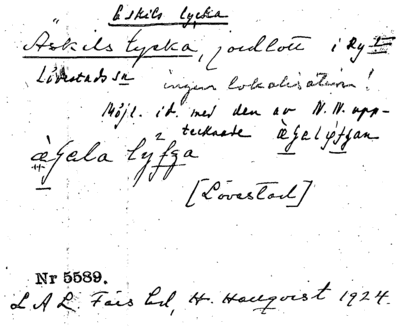 Eskils lycka
Äskils lycka, jordlott i Ry
Lövestads sn ingen lokalisation!
Möjl. id. med den av N.N. upp-
tecknade
àɡala lỳ²
[Lövestad]
Nr 5589.
L A L Färs hd, H. Hallqvist 1924.